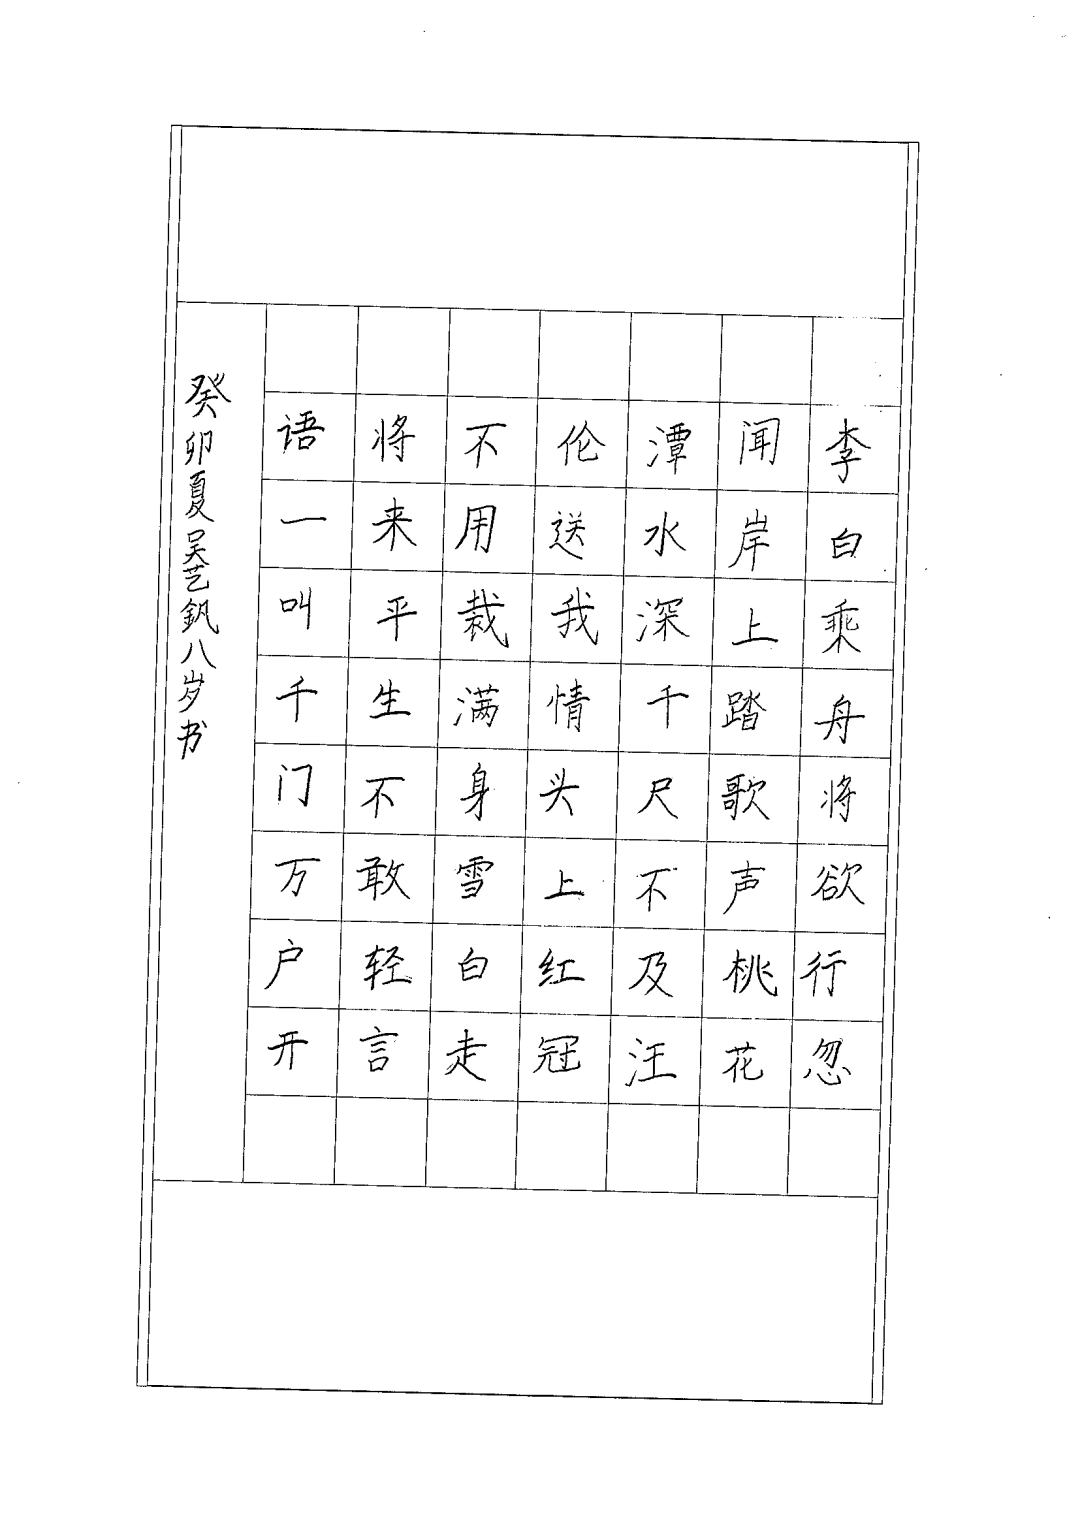 李白乘舟将欲行忽
闻岸上踏歌声桃花
潭水深千尺不及汪
伦送我情头上红冠
不用裁满身雪白走
将来平生不敢轻言
语一叫千门万户开
癸卯夏吴艺釩八岁书